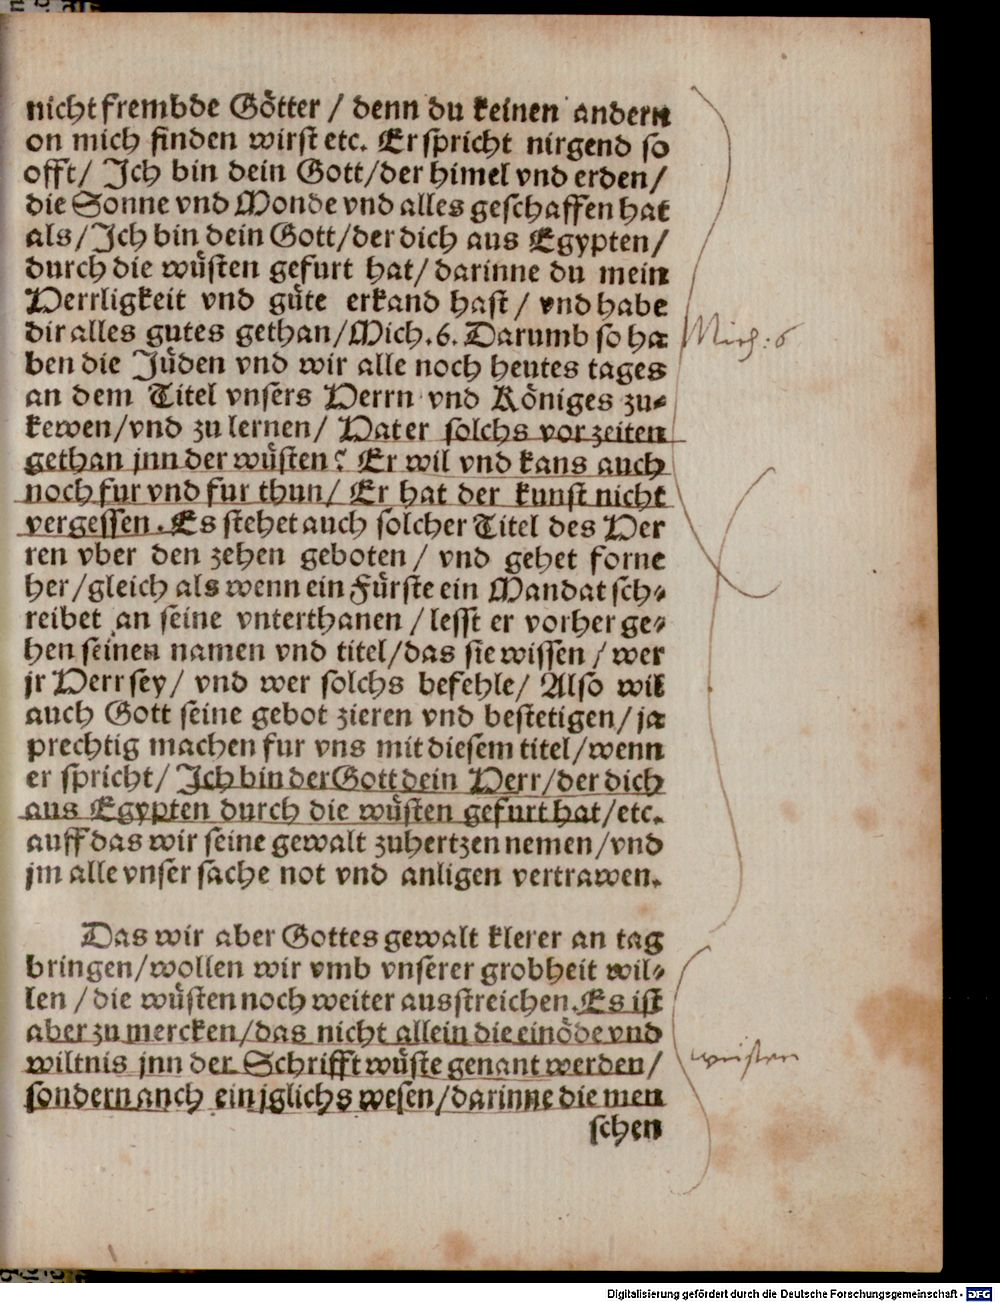 nicht frembde Götter / denn du keinen andern
on mich finden wirst etc. Er spricht nirgend so
offt/ Ich bin dein Gott/der himel vnd erden/
die Sonne vnd Monde vnd alles geschaffen hat
als/Ich bin dein Gott/der dich aus Egypten/
durch die wüsten gefurt hat/ darinne du mein
Herrligkeit vnd güte erkand hast / vnd habe
dir alles gutes gethan/Mich.6. Darumb so ha
Mich: 6
ben die Jüden vnd wir alle noch heutes tages
an dem Titel vnsers Herrn vnd Königes zu⸗
kewen/vnd zu lernen/ Hat er solchs vor zeiten
gethan jnn der wüsten? Er wil vnd kans auch
noch fur vnd fur thun/ Er hat der kunst nicht
vergessen. Es stehet auch solcher Titel des Her
ren vber den zehen geboten / vnd gehet forne
her/gleich als wenn ein Fürste ein Mandat sch⸗
reibet an seine vnterthanen / lesst er vorher ge⸗
hen seinen namen vnd titel/das sie wissen / wer
jr Herr sey/ vnd wer solchs befehle/ Also wil
auch Gott seine gebot zieren vnd bestetigen/ja
prechtig machen fur vns mit diesem titel/wenn
er spricht/ Ich bin der Gott dein Herr/der dich
aus Egypten durch die wüsten gefurt hat/etc.
auff das wir seine gewalt zuhertzen nemen/vnd
jm alle vnser sache not vnd anligen vertrawen.
Das wir aber Gottes gewalt klerer an tag
bringen/wollen wir vmb vnserer grobheit wil⸗
len /die wüsten noch weiter ausstreichen. Es ist
aber zu mercken/das nicht allein die einöde vnd
wiltnis jnn der Schrifft wüste genant werden/
wüsten
sondern auch ein jglichs wesen/darinne die men
schen
Digitalisierung gefördert durch die Deutsche Forschungsgemeinschaft - DFG